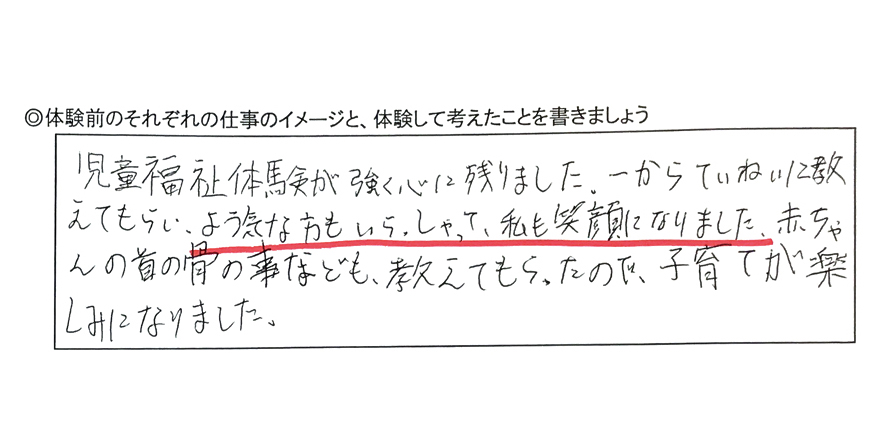 ◎体験前のそれぞれの仕事のイメージと、体験して考えたことを書きましょう
児童福祉体験が強く心に残りました。一からていねいに教
えてもらい、よう気な方もいらっしゃって、私も笑顔になりました。赤ちゃ
んの首の骨の事なども、教えてもらったので、子育てが楽
しみになりました。